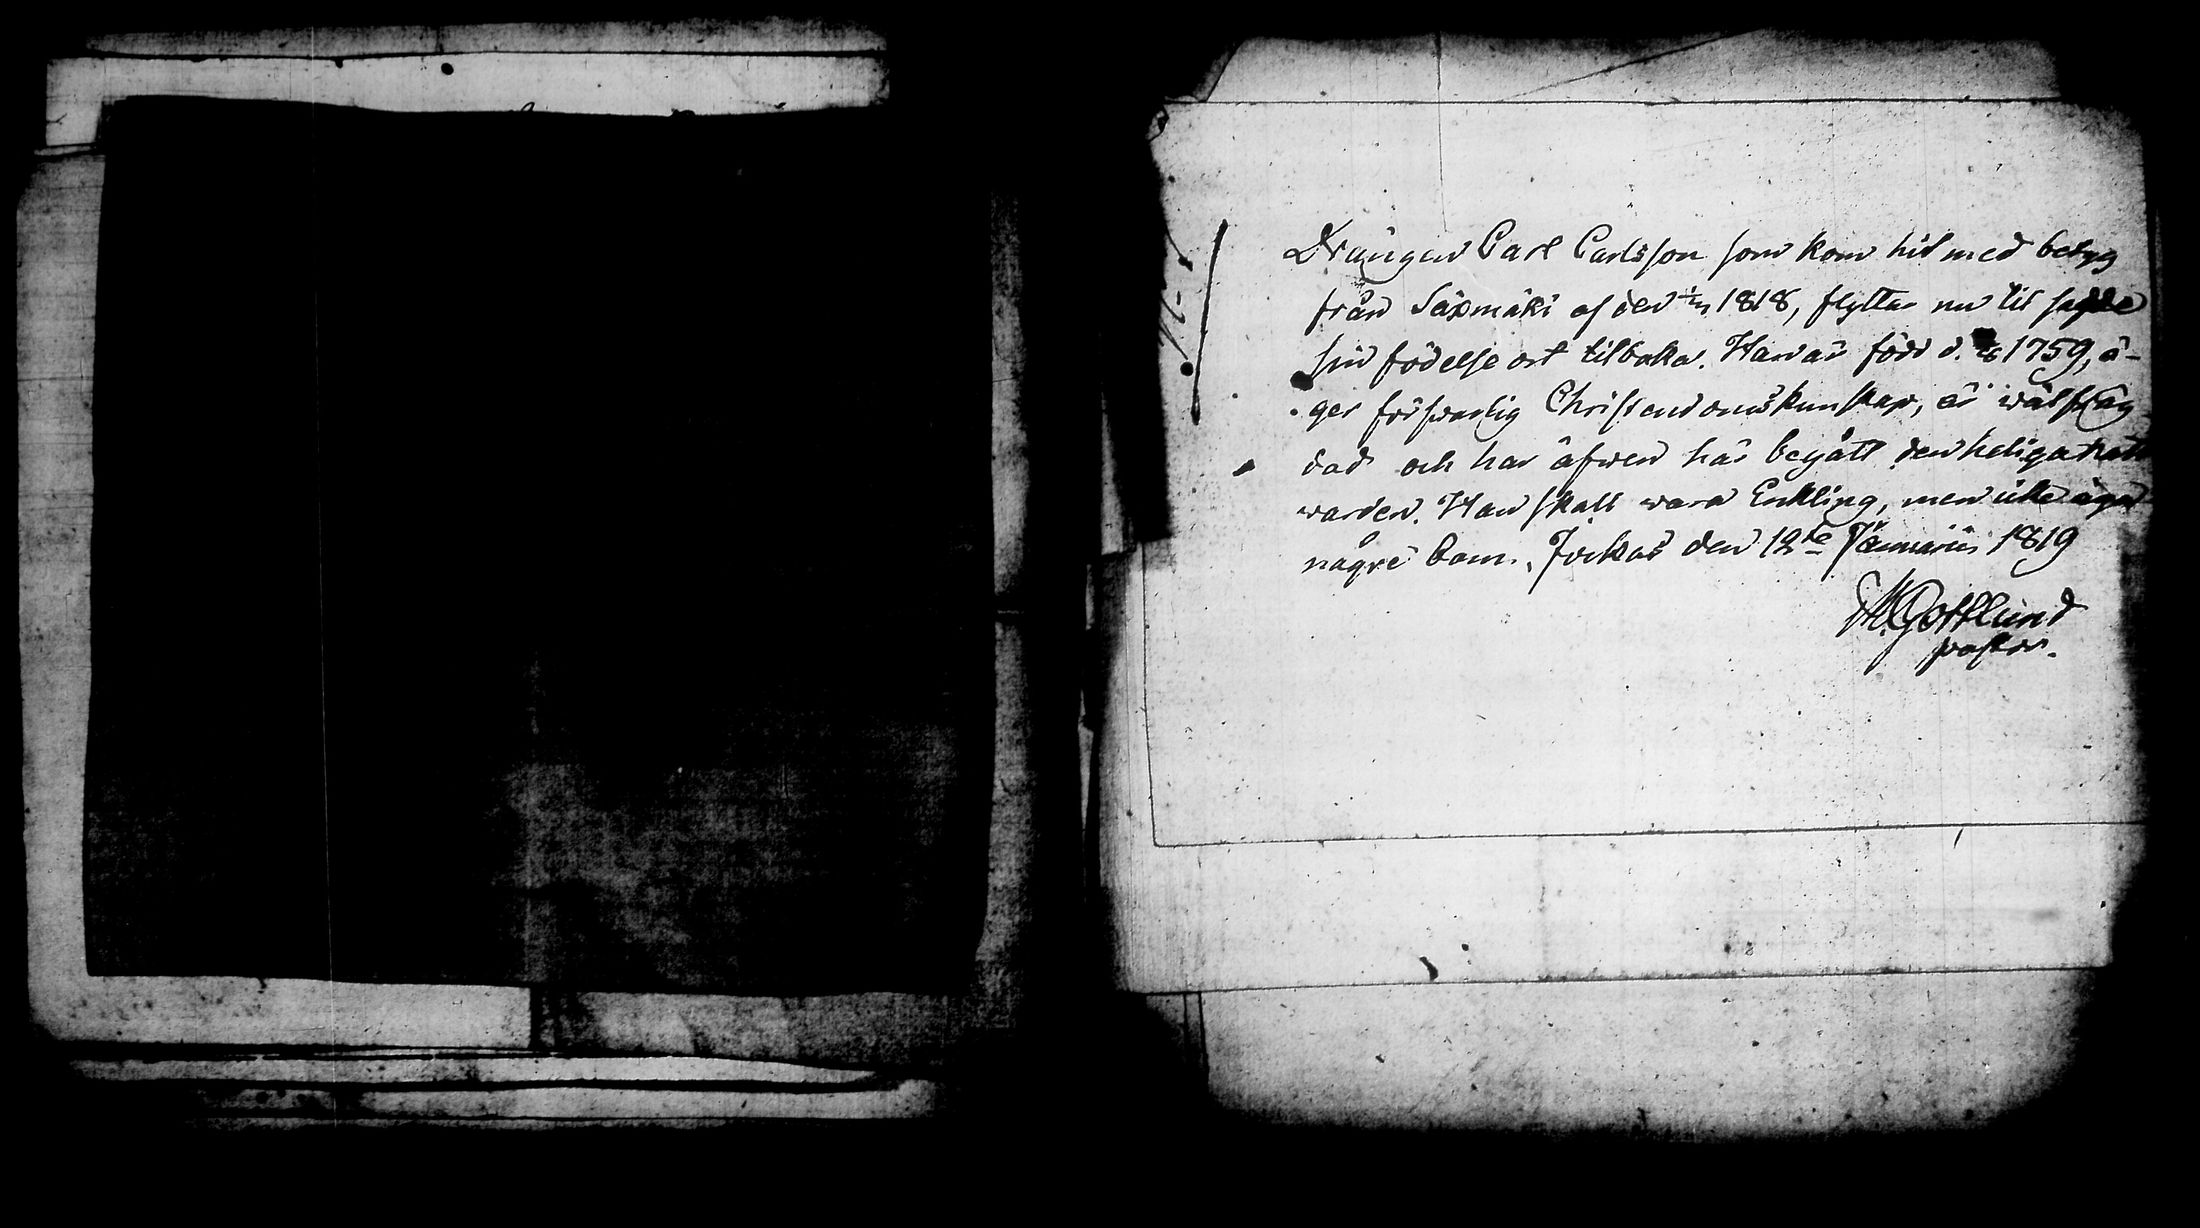 Drängen Carl Carlsson som kom hit med betyg
från Säxmäki af den 1818, flyttar nu til sagde
sin födelse ort tilbaka. Han är född d. 1759, ä-
ger försvarlig Christendomskunskap, är wälfräg-
dad och har äfwen här begått den heliga natt
warden. Han skall wara Enkling, men icke äga
några barn. Jockas den 12te Januarii 1819
M. Gottlund
pastor.